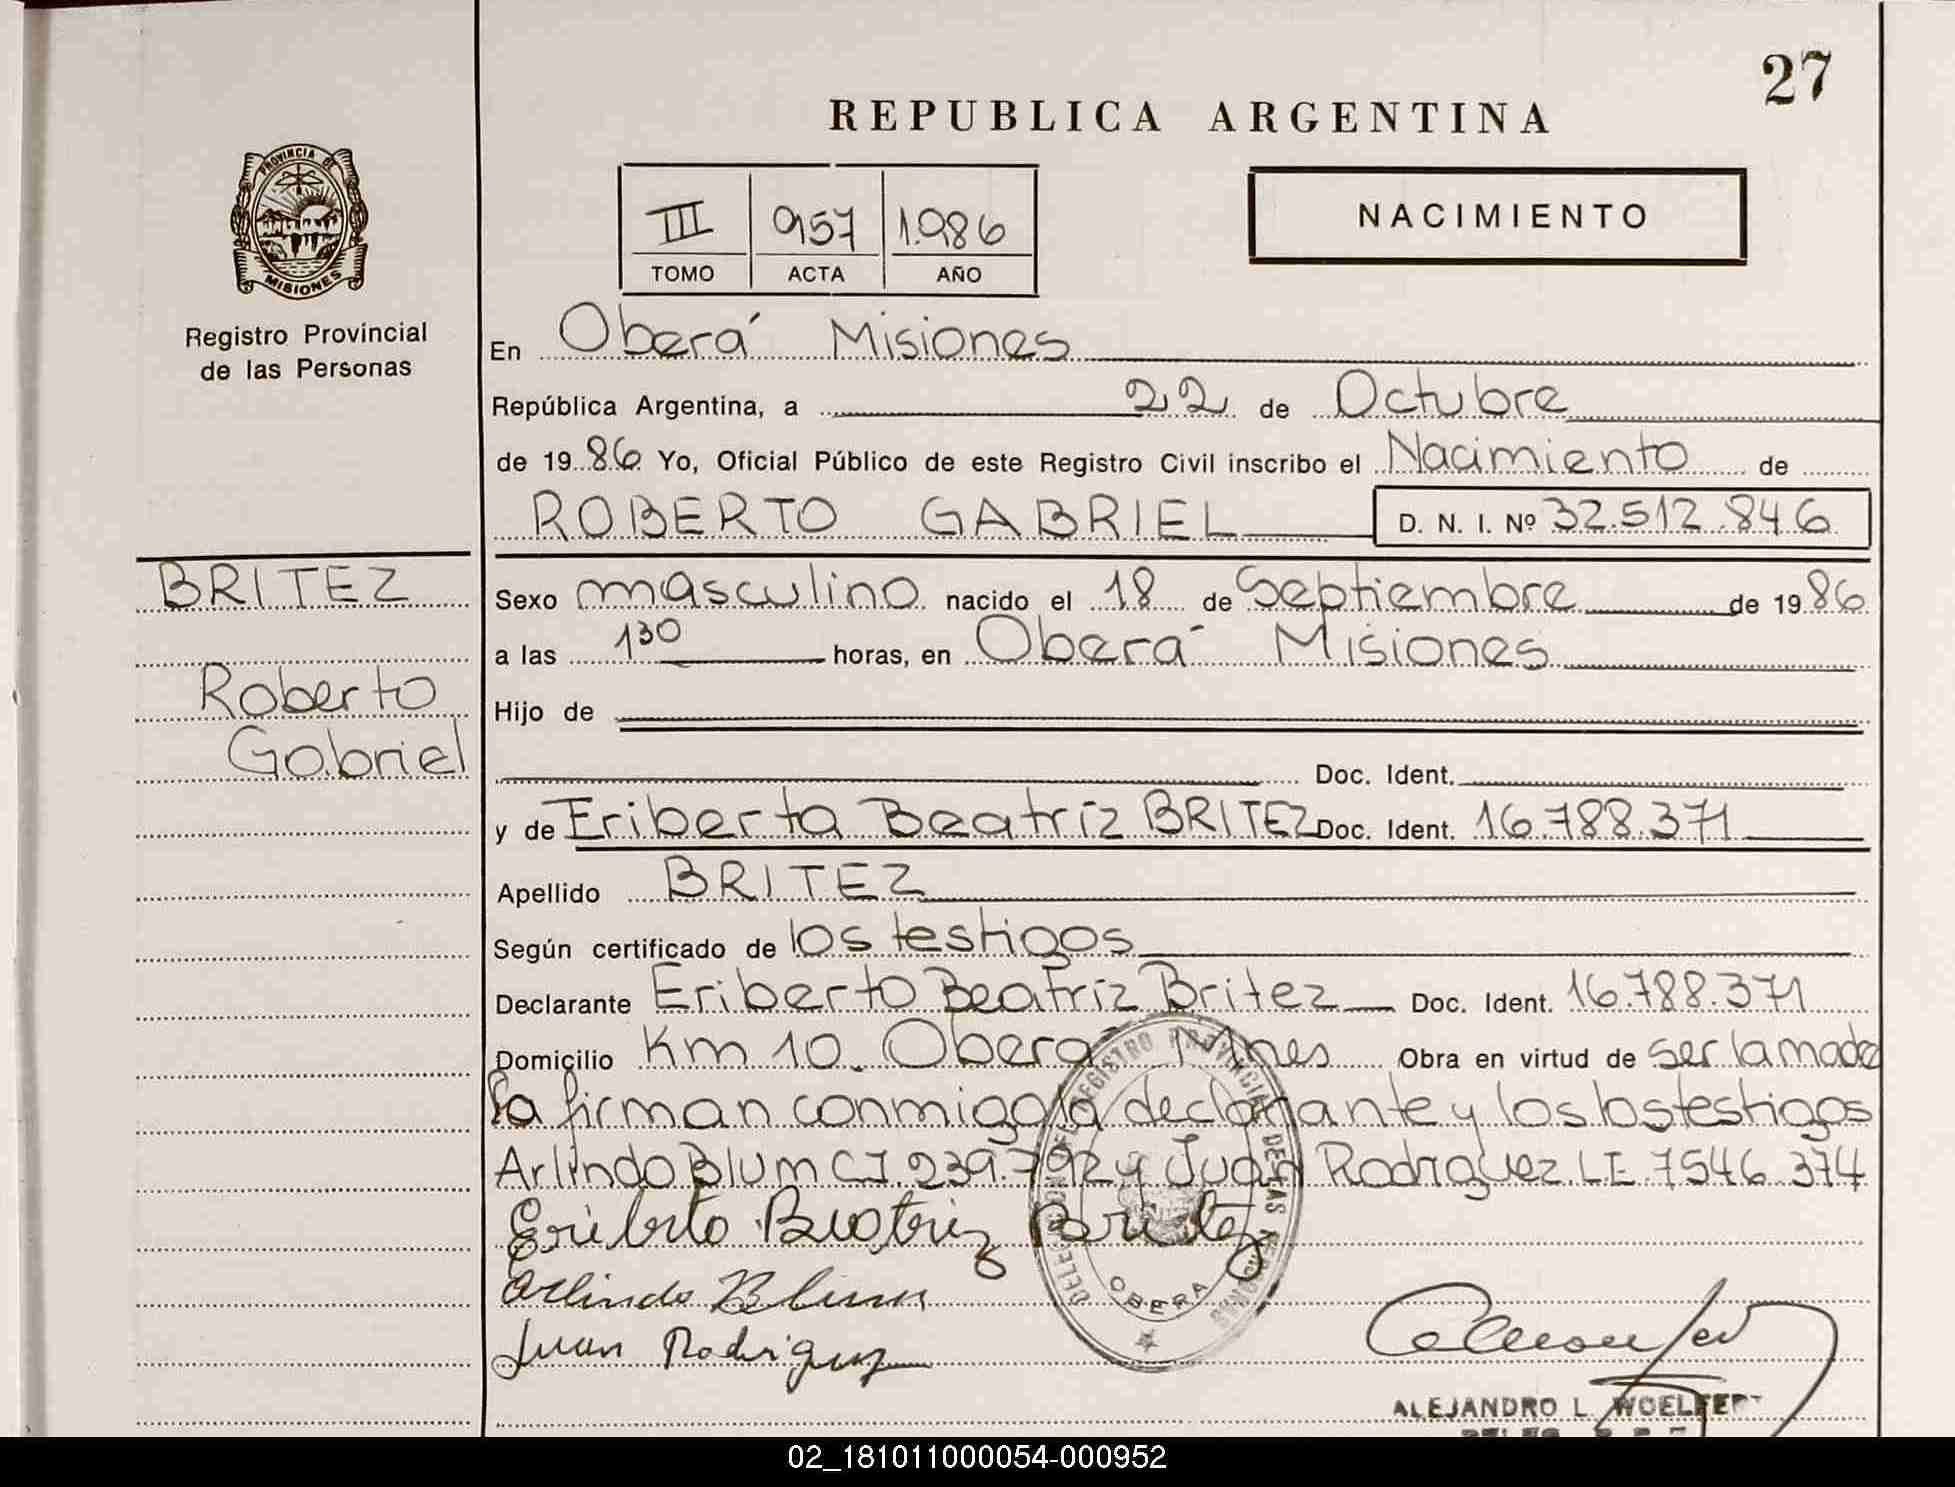 27
REPUBLICA ARGENTINA
PROVINCIA DE
MISIONES
Registro Provincial
de las Personas
III 957 1.986
TOMO ACTA AÑO
NACIMIENTO
En Oberá Misiones
República Argentina, a 22 de Octubre
de 1986 Yo, Oficial Público de este Registro Civil inscribo el Nacimiento de
ROBERTO GABRIEL D. N. I. Nº 32.512.846
BRITEZ
Roberto
Gabriel
Sexo masculino nacido el 18 de Septiembre de 1986
a las 130 horas, en Oberá Misiones
Hijo de
Doc. Ident.
y de Eriberta Beatriz BRITEZ Doc. Ident. 16.788.371
Apellido BRITEZ
Según certificado de los testigos
Declarante Eriberto Beatriz Britez Doc. Ident. 16.788.371
Domicilio Km 10. Oberá Mnes Obra en virtud de ser la madre
firman conmigo la declarante y los los testigos
Arlindo Blum CI. 239.792 y Juan Rodriguez LE. 7546.374
Eriberto Beatriz Britez
Arlindo Blum
Juan Rodriguez
DELEGACION DEL REGISTRO PROVINCIAL DE LAS PERSONAS
OBERA
ALEJANDRO L. WOELFERT
02_181011000054-000952